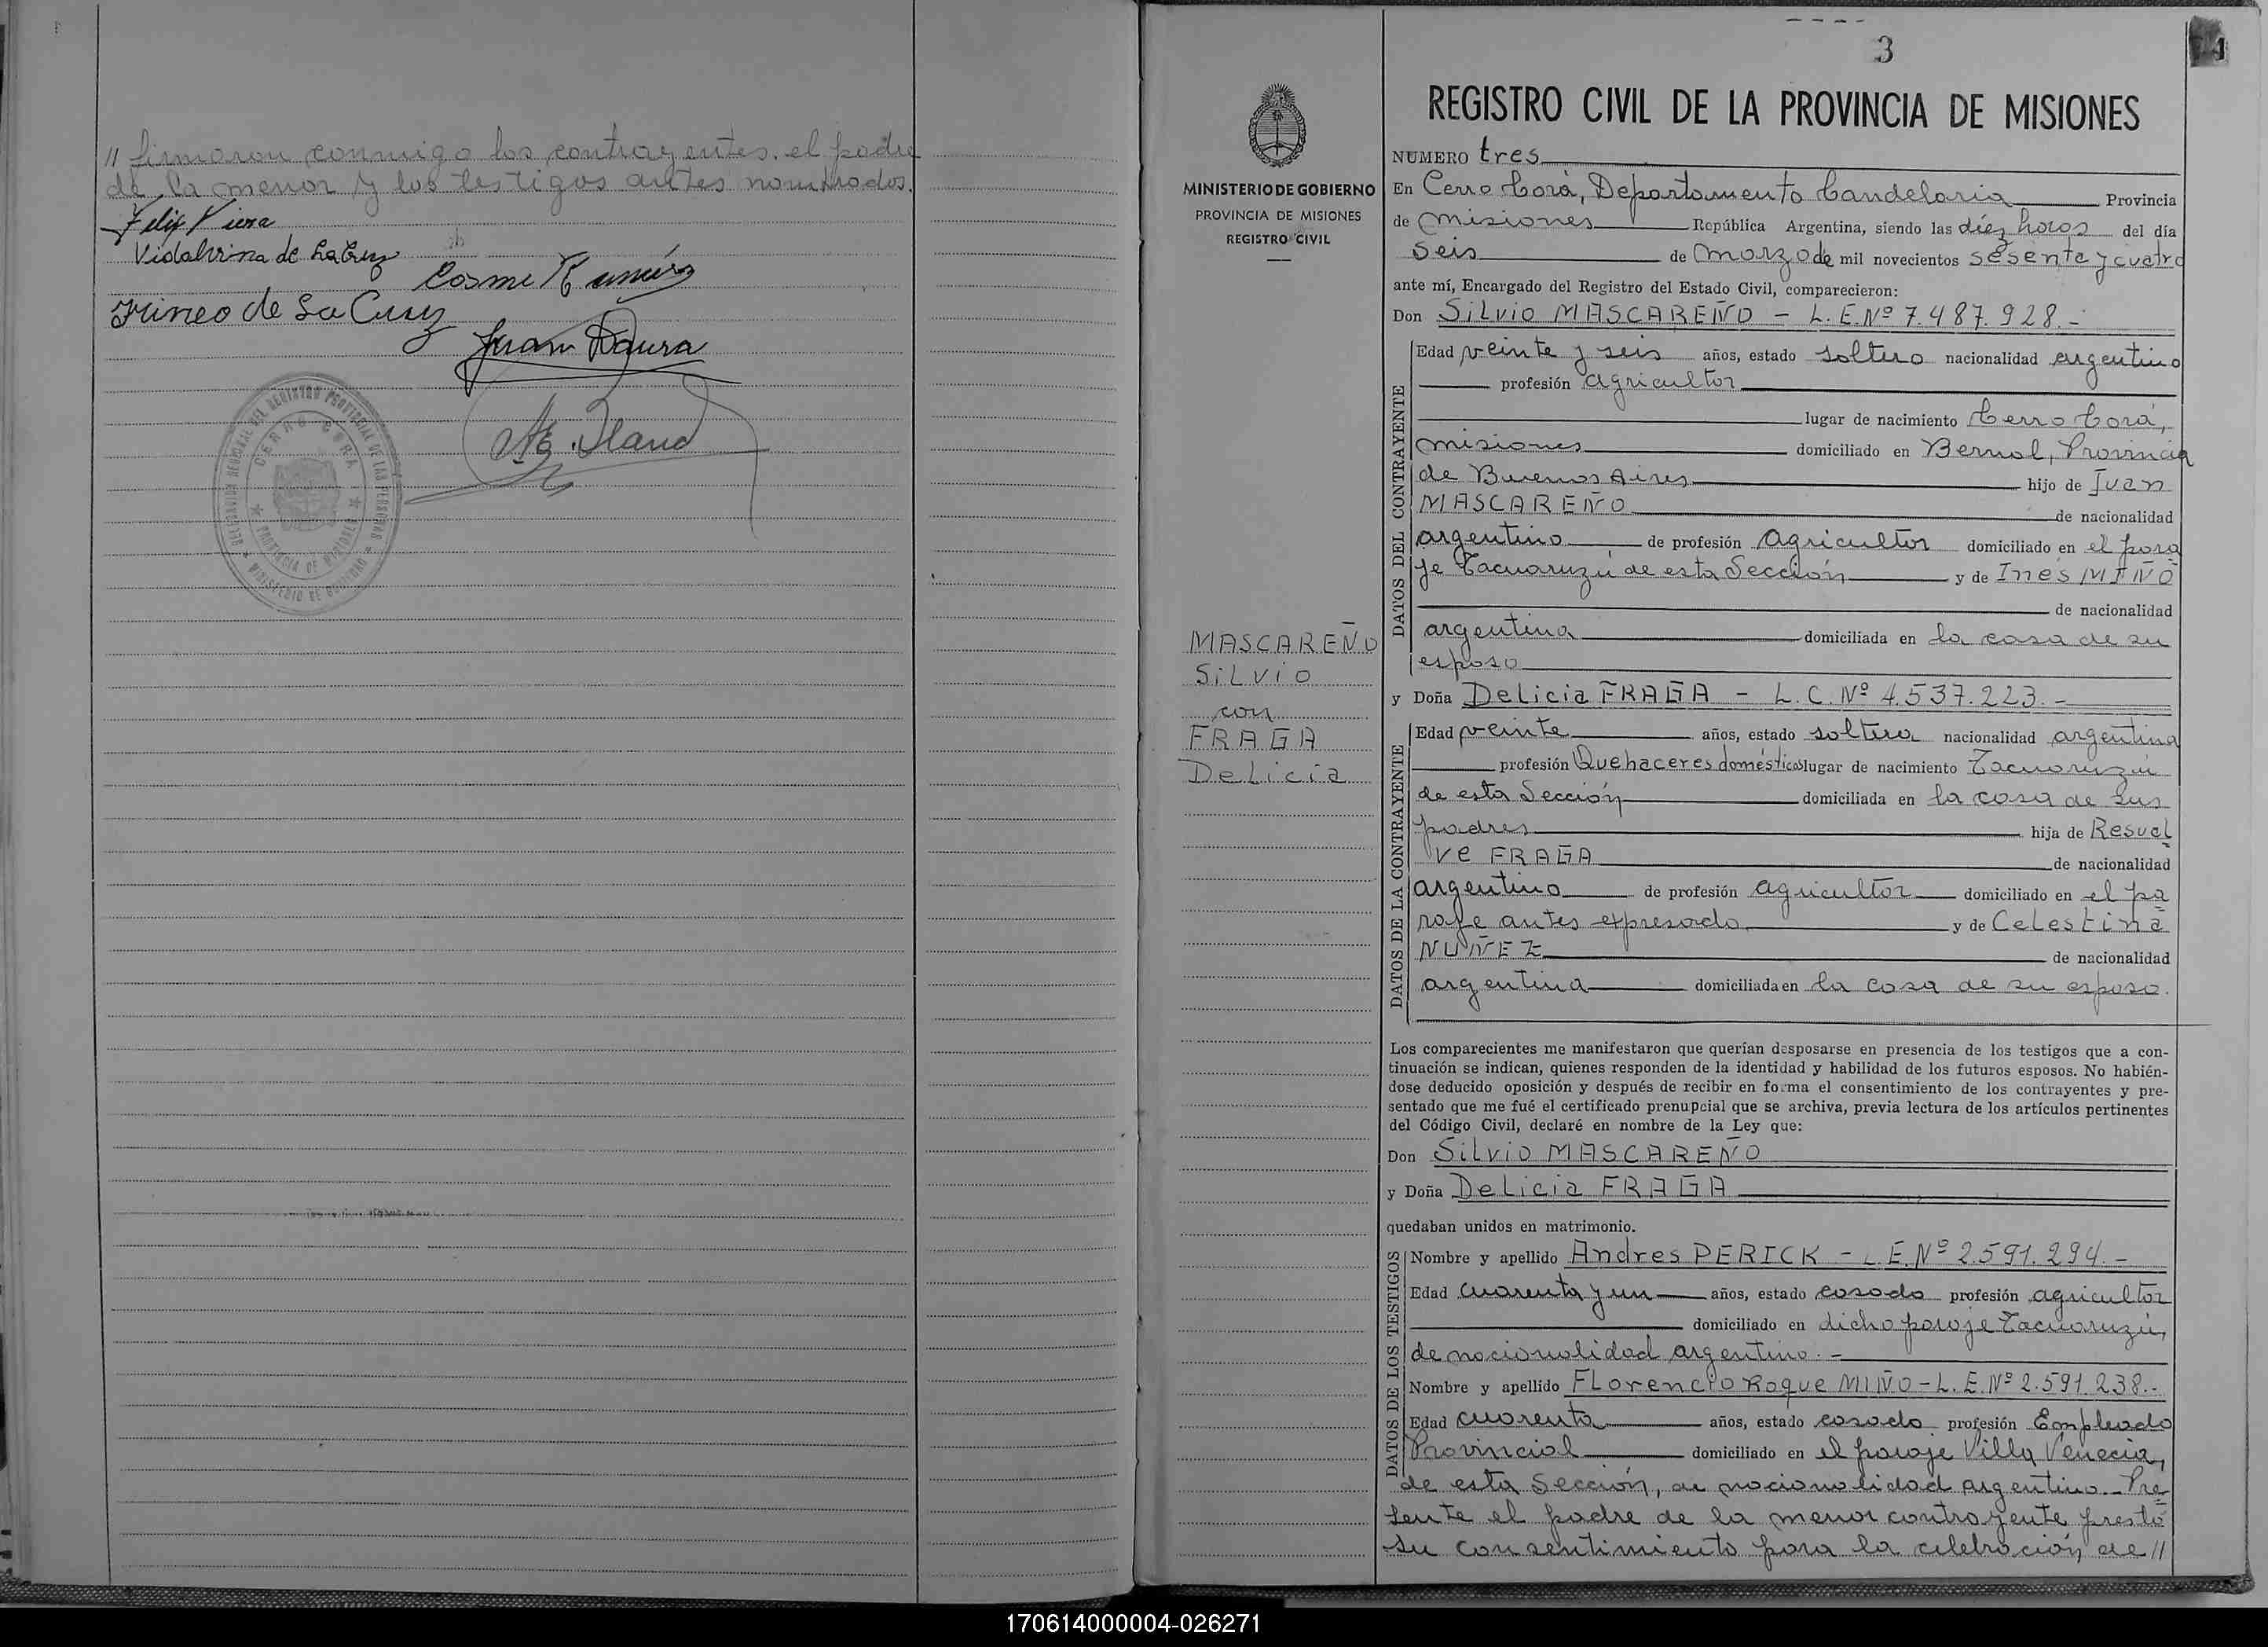 // firmaron conmigo los contrayentes, el padre
de la menor y los testigos antes nombrados.
Felix Viera
Vidalvina de La Cruz
Cosme Ramírez
Irineo de La Cruz
Juan Daura
CERRO CORA
PROVINCIA DE MISIONES
MINISTERIO DE GOBIERNO
3
MINISTERIO DE GOBIERNO
PROVINCIA DE MISIONES
REGISTRO CIVIL
MASCAREÑO
Silvio
con
FRAGA
Delicia
REGISTRO CIVIL DE LA PROVINCIA DE MISIONES
NUMERO tres
En Cerro Corá, Departamento Candelaria Provincia
de Misiones República Argentina, siendo las diéz horas del día
seis de Marzo de mil novecientos sesenta y cuatro
ante mí, Encargado del Registro del Estado Civil, comparecieron:
Don Silvio MASCAREÑO - L.E.Nº 7.487.928.-
DATOS DEL CONTRAYENTE
Edad veinte y seis años, estado soltero nacionalidad argentino
profesión agricultor
lugar de nacimiento Cerro Corá,
Misiones domiciliado en Bernal, Provincia
de Buenos Aires hijo de Juan
MASCAREÑO de nacionalidad
argentino de profesión agricultor domiciliado en el para
je Tacuaruzú de esta Sección y de Inés MIÑO
de nacionalidad
argentina domiciliada en la casa de su
esposo
y Doña Delicia FRAGA - L.C.Nº 4.537.223.-
DATOS DE LA CONTRAYENTE
Edad veinte años, estado soltera nacionalidad argentina
profesión Quehaceres domésticos lugar de nacimiento Tacuaruzú
de esta Sección domiciliada en la casa de sus
padres hija de Resuel
ve FRAGA de nacionalidad
argentino de profesión agricultor domiciliado en el pa
raje antes expresado y de Celestina
NUÑEZ de nacionalidad
argentina domiciliada en la casa de su esposo.
Los comparecientes me manifestaron que querían desposarse en presencia de los testigos que a con-
tinuación se indican, quienes responden de la identidad y habilidad de los futuros esposos. No habién-
dose deducido oposición y después de recibir en forma el consentimiento de los contrayentes y pre-
sentado que me fué el certificado prenupcial que se archiva, previa lectura de los artículos pertinentes
del Código Civil, declaré en nombre de la Ley que:
Don Silvio MASCAREÑO
y Doña Delicia FRAGA
quedaban unidos en matrimonio.
DATOS DE LOS TESTIGOS
Nombre y apellido Andres PERICK - L.E.Nº 2.591.294.-
Edad cuarenta y un años, estado casado profesión agricultor
domiciliado en dicho paraje Tacuaruzú,
de nacionalidad argentino.-
Nombre y apellido Florencio Roque MIÑO - L.E.Nº 2.591.238.-
Edad cuarenta años, estado casado profesión Empleado
Provincial domiciliado en el paraje Villa Venecia,
de esta Sección, de nacionalidad argentino.- Pre
sente el padre de la menor contrayente prestó
su consentimiento para la celebración de //
170614000004-026271